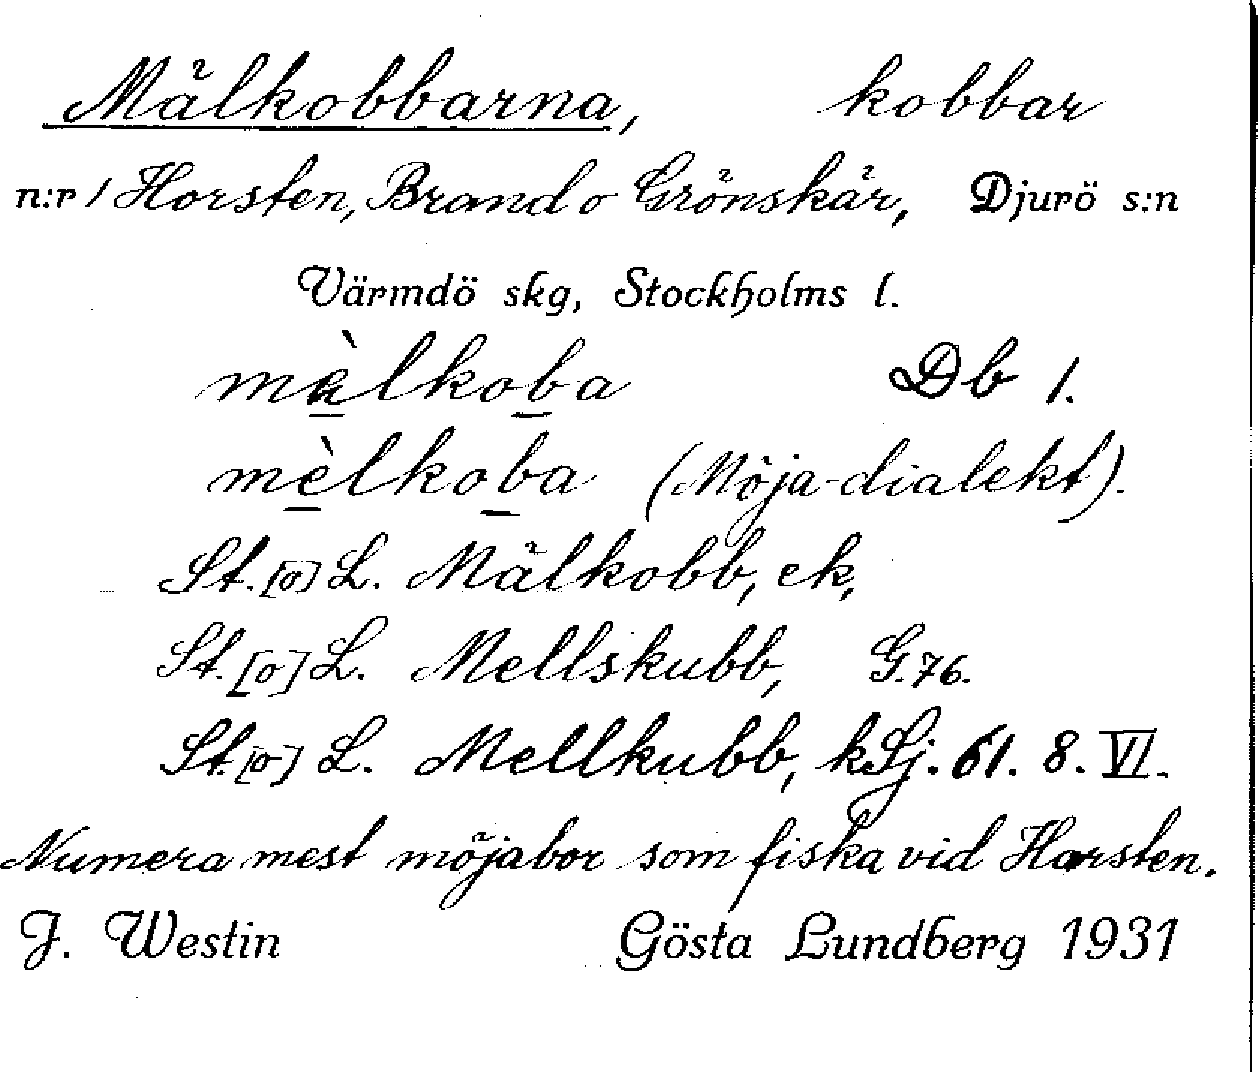 Mälkobbarna, kobbar
n:r 1 Horsten, Brand o Grönskär, Djurö s:n
Värmdö skg, Stockholms l.
màlkoba Db 1.
mèlkoba (Möja-dialekt).
St. [o] L. Mälkobb, ek,
St. [o] L. Mellskubb, G. 76.
St. [o] L. Mellkubb, kSj. 61. 8. VI.
Numera mest möjabor som fiska vid Harsten.
J. Westin Gösta Lundberg 1931